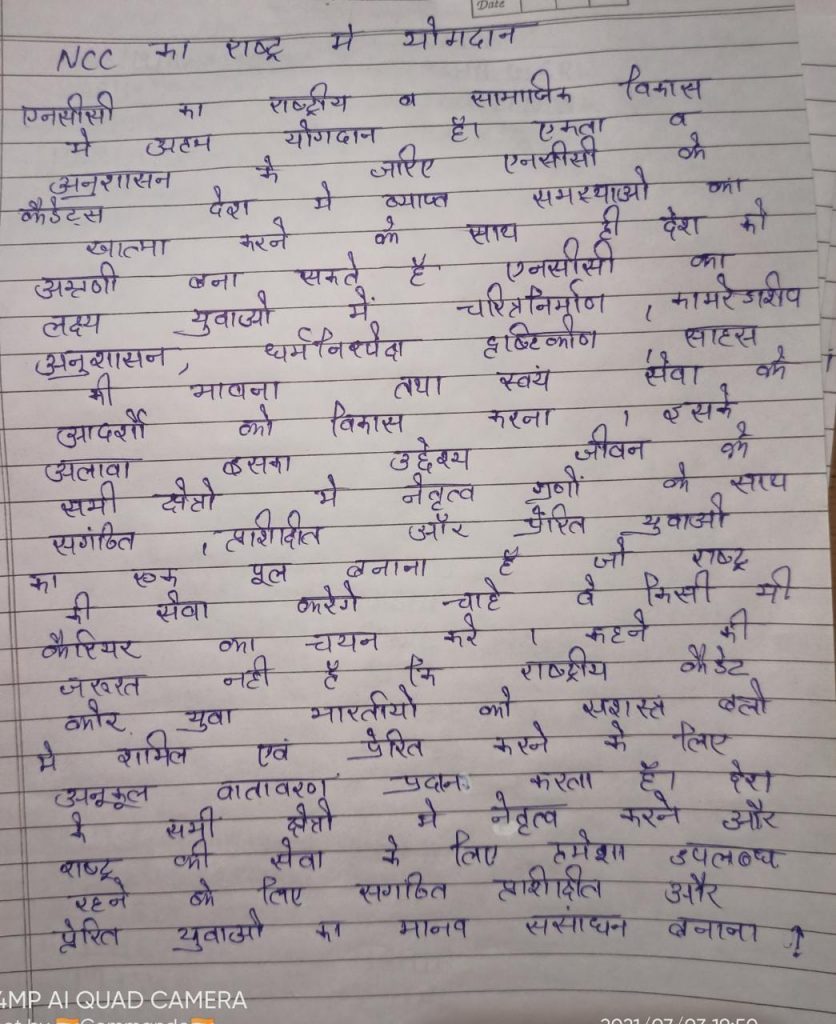 Date
NCC का राष्ट्र मे योगदान
एनसीसी का राष्ट्रीय व सामाजिक विकास
मे अहम योगदान है। एकता व
अनुशासन के जरिए एनसीसी के
कैडेट्स देश मे व्याप्त समस्याओ का
खात्मा करने के साथ ही देश को
अग्रणी बना सकते है एनसीसी का
लक्ष्य युवाओ में चरित्रनिर्माण , कामरेडशीप
अनुशासन, धर्मनिरपेक्ष दृष्टिकोण , साहस
की भावना तथा स्वयं सेवा के
आदर्शो को विकास करना । इसके
अलावा इसका उद्देश्य जीवन के
सभी क्षेत्रो मे नेतृत्व गुणों के साथ
सगंठित , प्रशिक्षीत और प्रेरित युवाओ
का एक पूल बनाना है जो राष्ट्र
की सेवा करेगे चाहे वे किसी भी
कैरियर का चयन करे । कहने की
जरूरत नही है कि राष्ट्रीय कैडेट
कोर युवा भारतीयो को सशस्त्र बलो
मे शामिल एवं प्रेरित करने के लिए
अनूकूल वातावरण प्रदान करता है। देश
के सभी क्षेत्रो मे नेतृत्व करने और
राष्ट्र की सेवा के लिए हमेशा उपलब्ध
रहने के लिए सगठित प्रशिक्षीत और
प्रेरित युवाओ का मानव संसाधन बनाना ।
4MP AI QUAD CAMERA
ot by Commando
2021/07/07 19:59